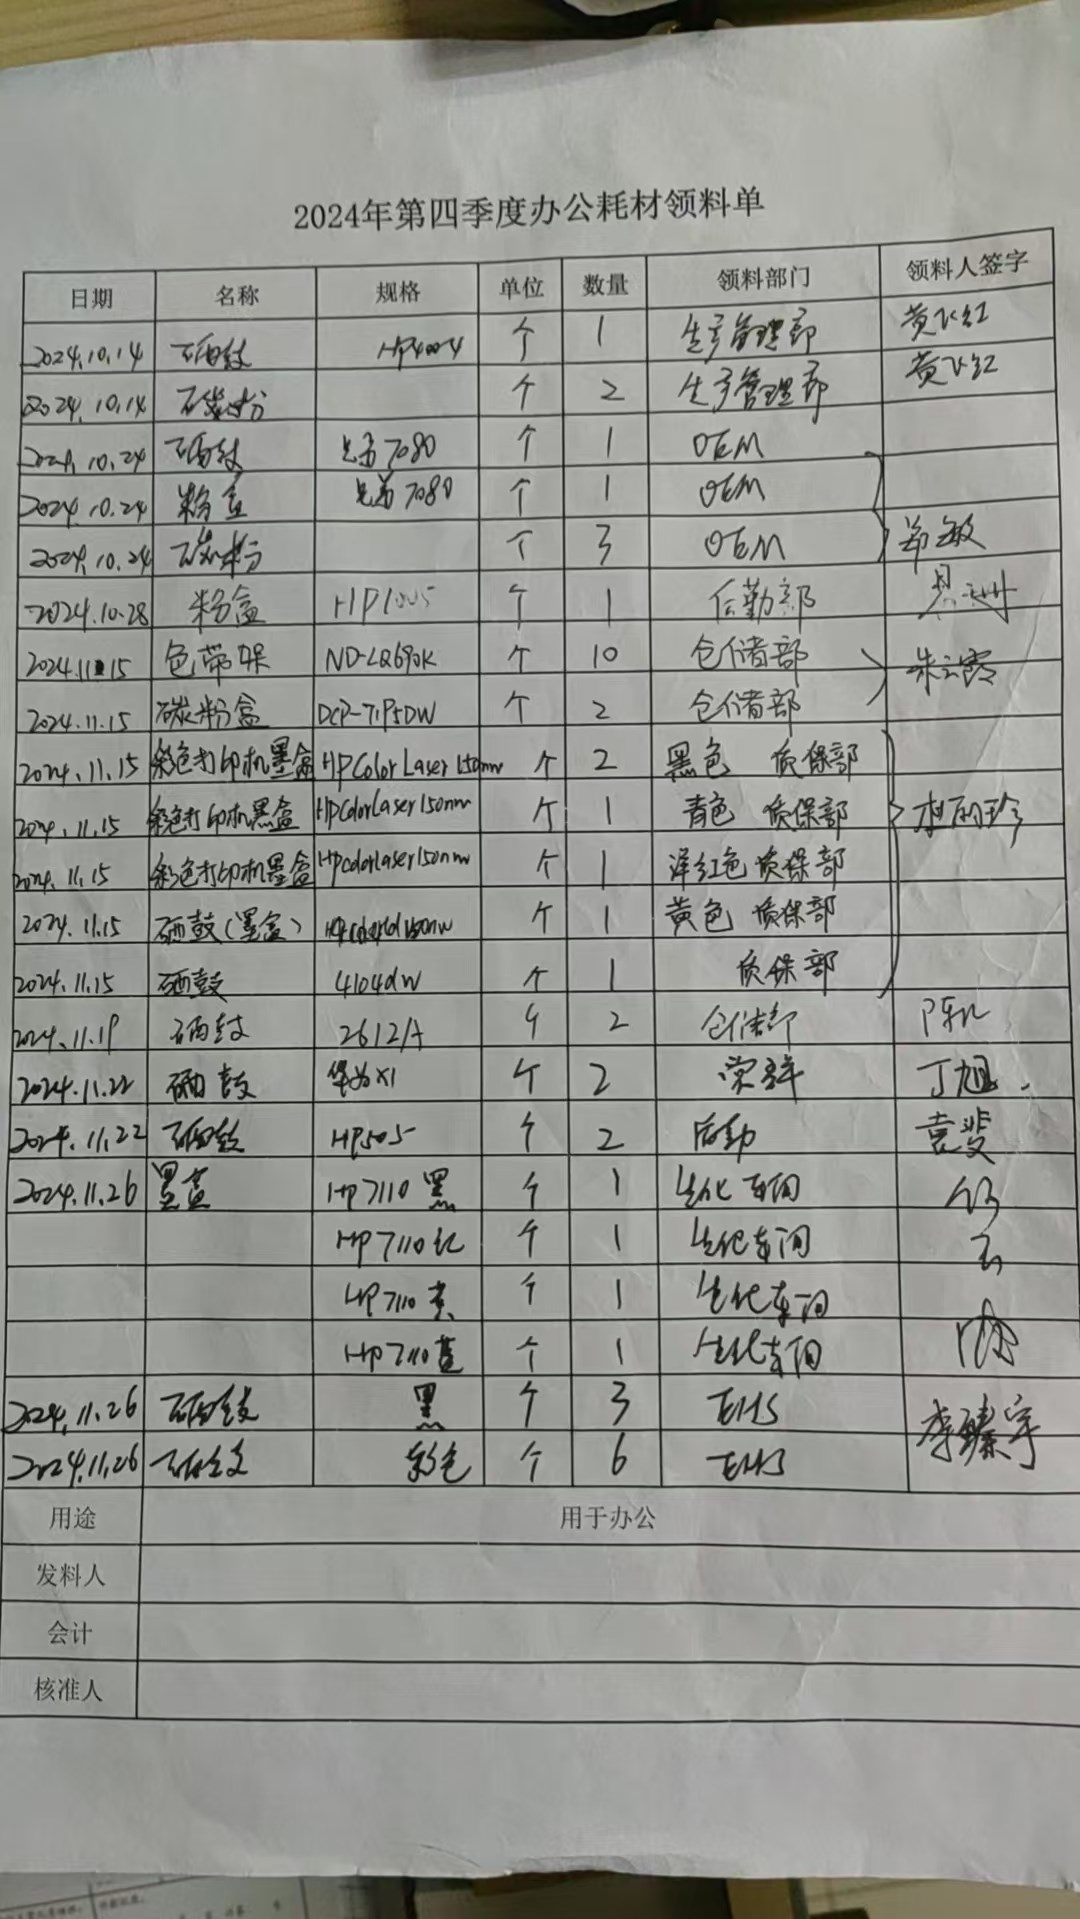 2024年第四季度办公耗材领料单
日期 名称 规格 单位 数量 领料部门 领料人签字
2024.10.14 硒鼓 HP4004 个 1 生产管理部 黄飞红
2024.10.14 碳粉 个 2 生产管理部 黄飞红
2024.10.24 硒鼓 兄弟7080 个 1 OEM
2024.10.24 粉盒 兄弟7080 个 1 OEM
2024.10.24 碳粉 个 3 OEM 敏
2024.10.28 粉盒 HP1005 个 1 后勤部
2024.11.15 色带架 ND-LQ690K 个 10 仓储部 朱云霞
2024.11.15 碳粉盒 个 2 仓储部
2024.11.15 彩色打印机墨盒 HPColor Laser 150nw 个 2 黑色 质保部
2024.11.15 彩色打印机墨盒 HPColorLaser150nw 个 1 青色 质保部
2024.11.15 彩色打印机墨盒 HPcolorLaser150nw 个 1 洋红色 质保部
2024.11.15 硒鼓(墨盒) 个 1 黄色 质保部
2024.11.15 硒鼓 4104dw 个 1 质保部
2024.11.19 硒鼓 2612A 个 2 仓储部
2024.11.22 硒鼓 华为X1 个 2 丁旭
2024.11.22 硒鼓 HP505 个 2 后勤 袁斐
2024.11.26 墨盒 HP7110 黑 个 1 生化车间
HP7110红 个 1 生化车间
HP7110黄 个 1 生化车间
HP7110蓝 个 1 生化车间
2024.11.26 硒鼓 黑 个 3 EHS 李臻宇
2024.11.26 硒鼓 彩色 个 6 EHS
用途 用于办公
发料人
会计
核准人